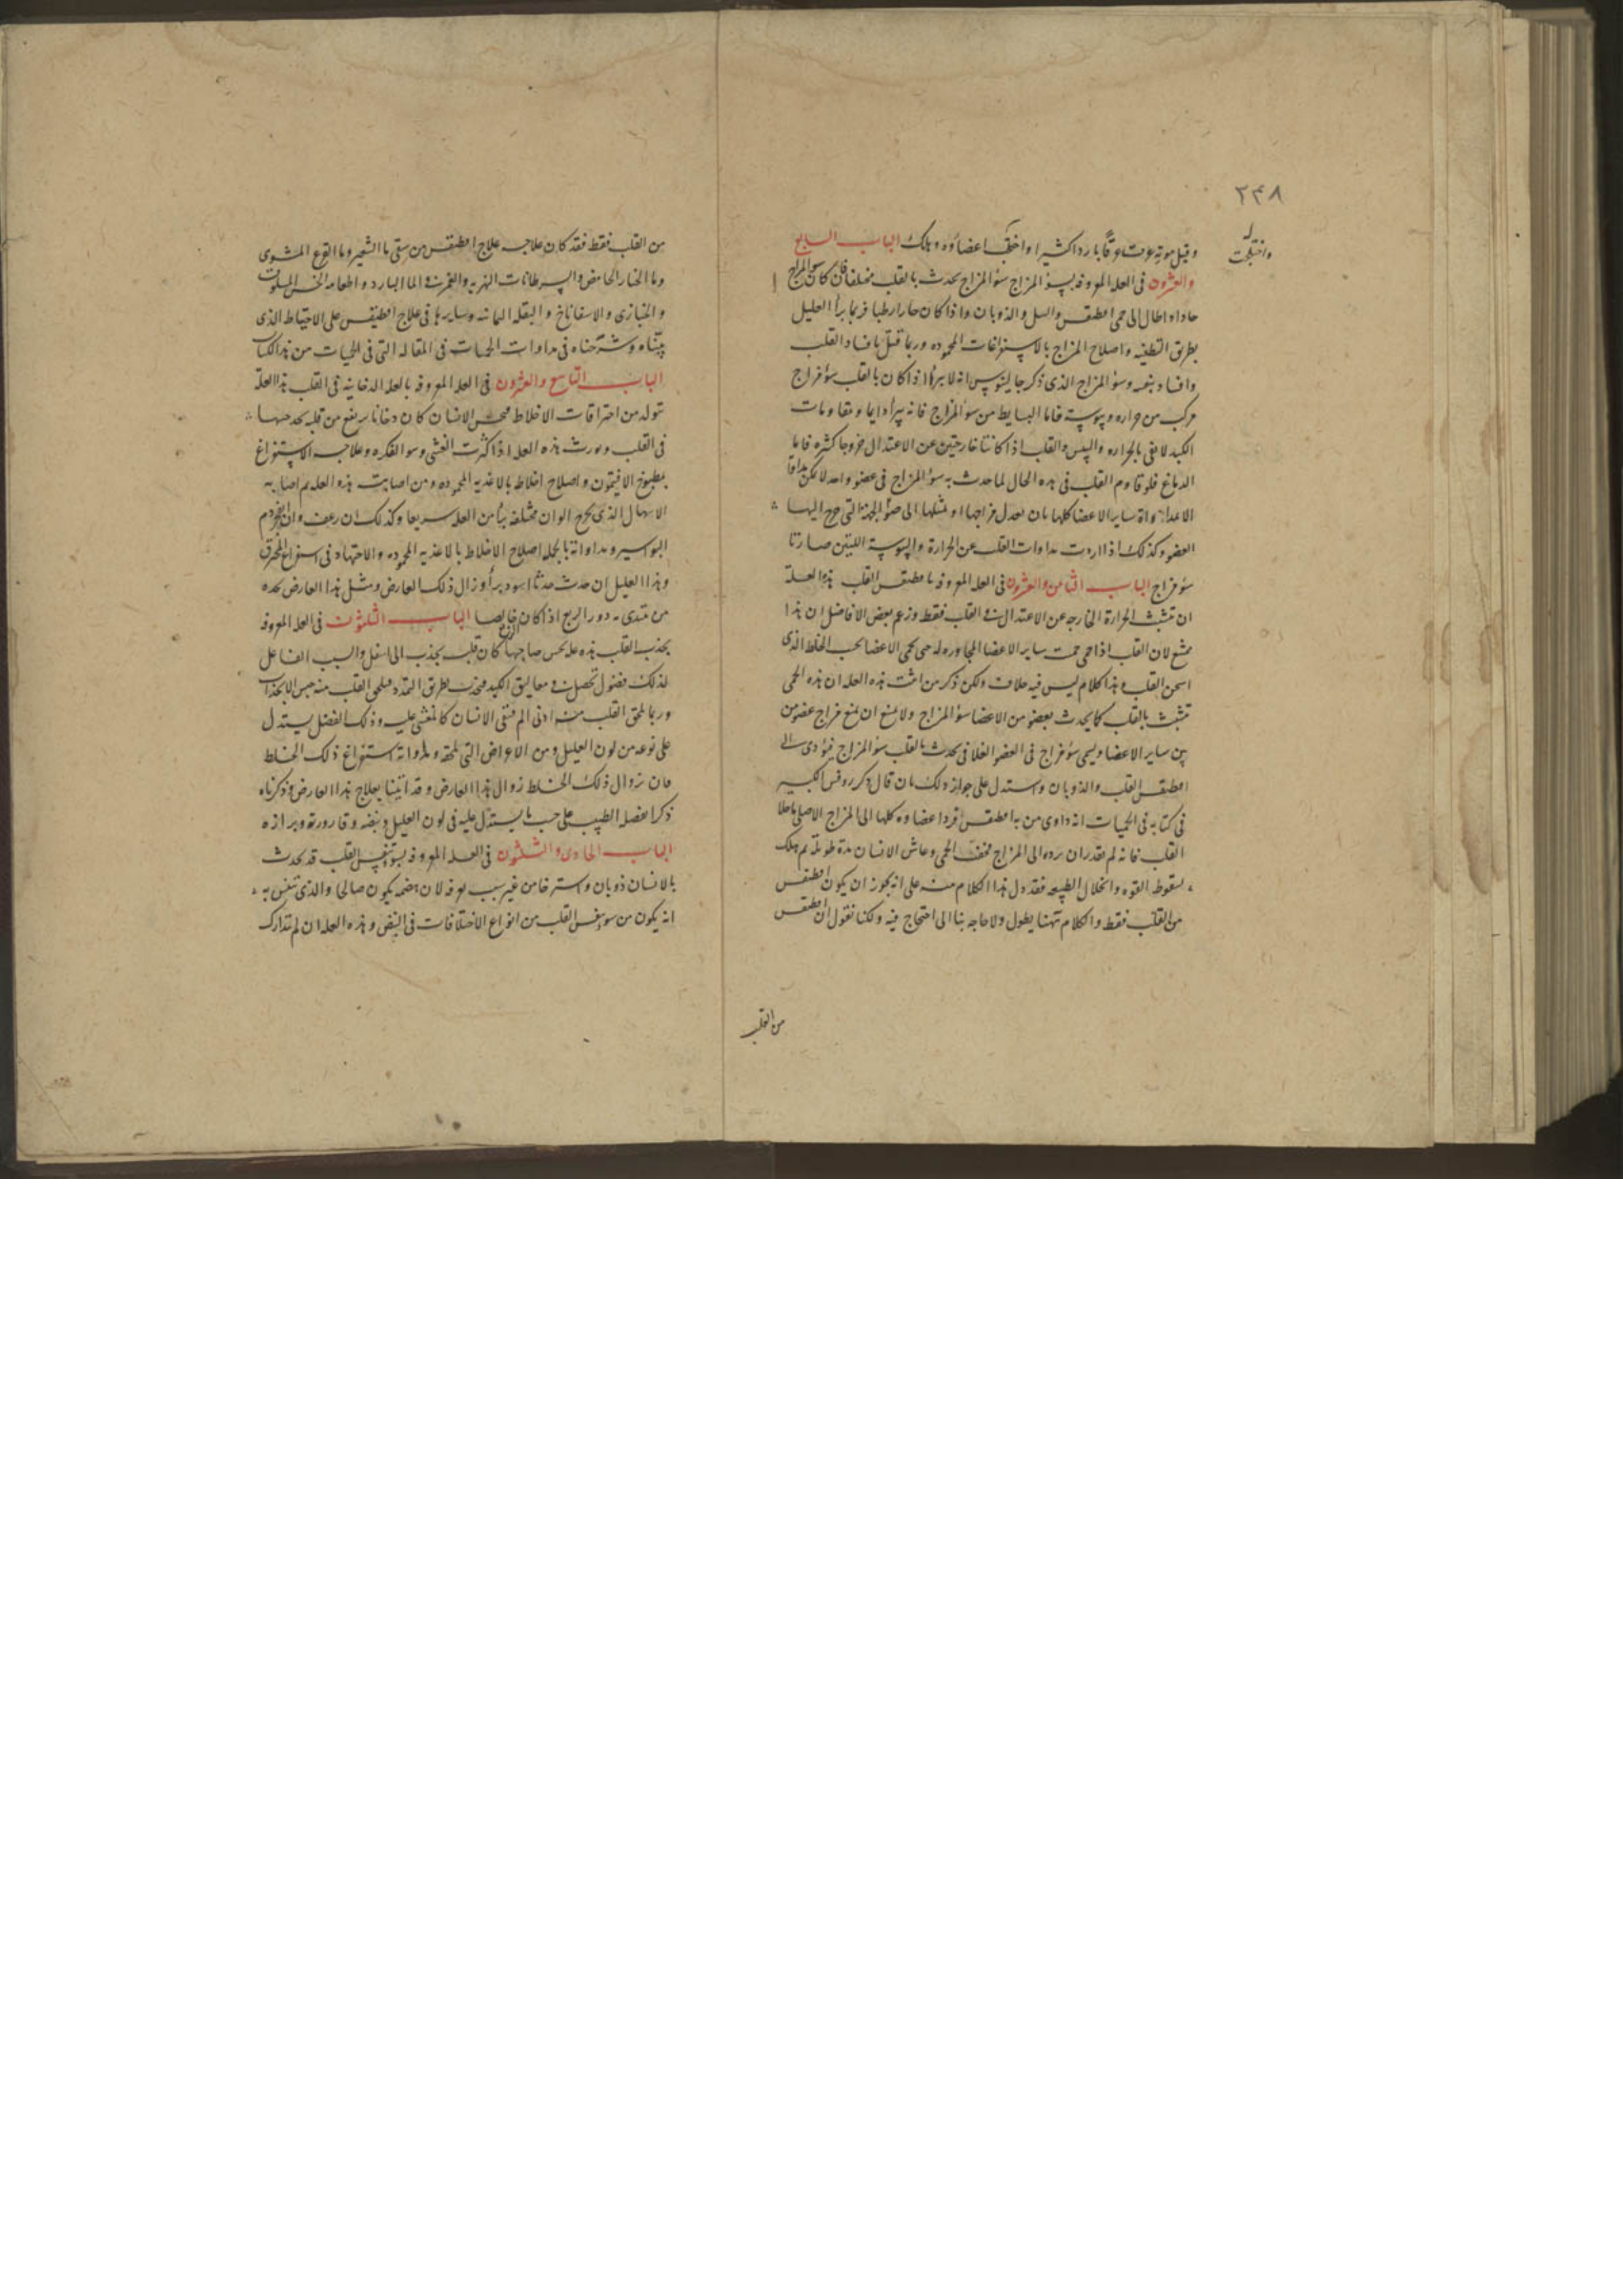 ٢٤٨
وقبل موته عرقا باردا كثيرا واختلج اعضاؤه وهلك الباب السابع
واختلجت
والعشرون فى العله المعروفه بسوء المزاج سوء المزاج يحدث بالقلب مختلفا فان كان سوء المزاج
حادا وطال الى حمى اقطيقس والسل والذوبان واذا كان حارا رطبا فربما برأ العليل
بطريق التطفيه واصلاح المزاج بالاستفراغات المحموده وربما قتل بافساد القلب
وافساد وسوء المزاج الذى ذكر جالينوس انه لا يبرأ اذا كان بالقلب سوء مزاج
مركب من حراره ويبوسة فاما البسايط من سوء المزاج فانه يبرأ دايما ومقاومات
الكبد لا تفى بالحراره واليبس والقلب اذا كانتا خارجتين عن الاعتدال خروجا كثيره فاما
الدماغ فلو قاوم القلب فى هذه الحال لما حدث به سوء المزاج فى عضو واحد لا يمكن
ساير الاعضا كلها بان تعدل مزاجها او تميلها الى ضد الجهة التى خرج اليها
العضو وكذلك اذا اردت مداوات القلب عن الحرارة واليبوسة اللتين صارتا
سوء مزاج الباب الثامن والعشرون فى العله المعروفه باقطيقس القلب هذه العلة
ان تتشبث الحرارة الخارجه عن الاعتدال فى القلب فقط وزعم بعض الافاضل ان هذا
ممتنع لان القلب اذا حمى حميت ساير الاعضا المجاوره له حتى تحمى الاعضا بحسب الخلط الذى
اسخن القلب وهذا كلام ليس فيه خلاف ولكن ذكر من اثبت هذه العله ان هذه الحمى
تتشبث بالقلب كما يحدث بعضو من الاعضا سوء المزاج ولا يمنع ان يمنع مزاج عضو من
بين ساير الاعضا ويسمى سوء مزاج فى العضو الفلانى يحدث بالقلب سوء المزاج فيؤدى الى
اقطيقس القلب والذوبان واستدل على جواز ذلك بان قال ذكر روفس الكبير
فى كتابه فى الحميات انه داوى من به اقطيقس فرد اعضاوه كلها الى المزاج الاصلى ما خلا
القلب فانه لم يقدر ان يرده الى المزاج فخفت الحمى وعاش الانسان مدة طويلة ثم هلك
بسقوط القوه وانحلال الطبيعه فقد دل هذا الكلام منه على انه يجوز ان يكون اقطيقس
من القلب فقط والكلام ههنا يطول ولا حاجه بنا الى احتجاج فيه ولكنا نقول ان اقطيقس
من القلب
من القلب فقط فقد كان علاجه علاج اقطيقس من سقى ما الشعير وما القرع المشوى
وما الخيار الحامض والسرطانات النهريه والغمر فى الما البارد واطعامه الخس المسلوق
والخبازى والاسفاناخ والبقله اليمانيه وسايرها فى علاج اقطيقس على الاحتياط الذى
بيناه وشرحناه فى مداوات الحميات فى المقاله التى فى الحميات من هذا الكتاب
الباب التاسع والعشرون فى العله المعروفه بالعله الدخانيه فى القلب هذه العلة
تتولد من احتراقات الاخلاط فيحس الانسان كان دخانا يرتفع من قلبه
فى القلب ويورث هذه العله اذا كثرت الغشى وسو الفكره وعلاجه الاستفراغ
بمطبوخ الافيتمون واصلاح اخلاط بالاغذيه المحموده ومن اصابت هذه العله ثم اصابه
الاسهال الذى يخرج الوان مختلفه برأ من العله سريعا وكذلك ان رعف وان انفجر دم
البواسير ومداواته بالجمله اصلاح الاخلاط بالاغذيه المحموده والاجتهاد فى استفراغ المحترق
وهذا العليل ان حدث حدثا اسود برأ وزال ذلك العارض ومثل هذا العارض نجده
من مبتدى دور الربع اذا كان خالصا الباب الثلثون فى العله المعروفه
بجذب القلب هذه عله يحس صاحبها كان قلبه يجذب الى اسفل والسبب الفاعل
لذلك فضول تحصل فى معاليق الكبد فتجذب بطريق التمدد فيلحق القلب منه حس الانجذاب
وربما لحق القلب منه ادنى الم فبقى الانسان كالمغشى عليه وذلك الفضل يستدل
على نوعه من لون العليل ومن الاعراض التى تلحقه ومداواته استفراغ ذلك الخلط
فان زوال ذلك الخلط زوال هذا العارض وقد اتينا بعلاج هذا العارض وذكرناه
ذكرا الطبيب على حسب ما يستدل عليه فى لون العليل ونبضه وقارورته وبرازه
الباب الحادى والثلثون فى العله المعروفه بسوء تنفس القلب قد يحدث
بالانسان ذوبان واسترخا من غير سبب يعرفه لان هضمه يكون صالحا والذى تنفس به
انه يكون من سوء تنفس القلب من انواع الاختلافات فى النبض وهذه العله ان لم تتدارك